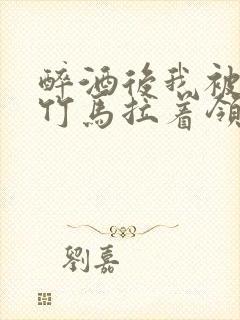 醉酒後我被
竹馬拉着領
劉嘉